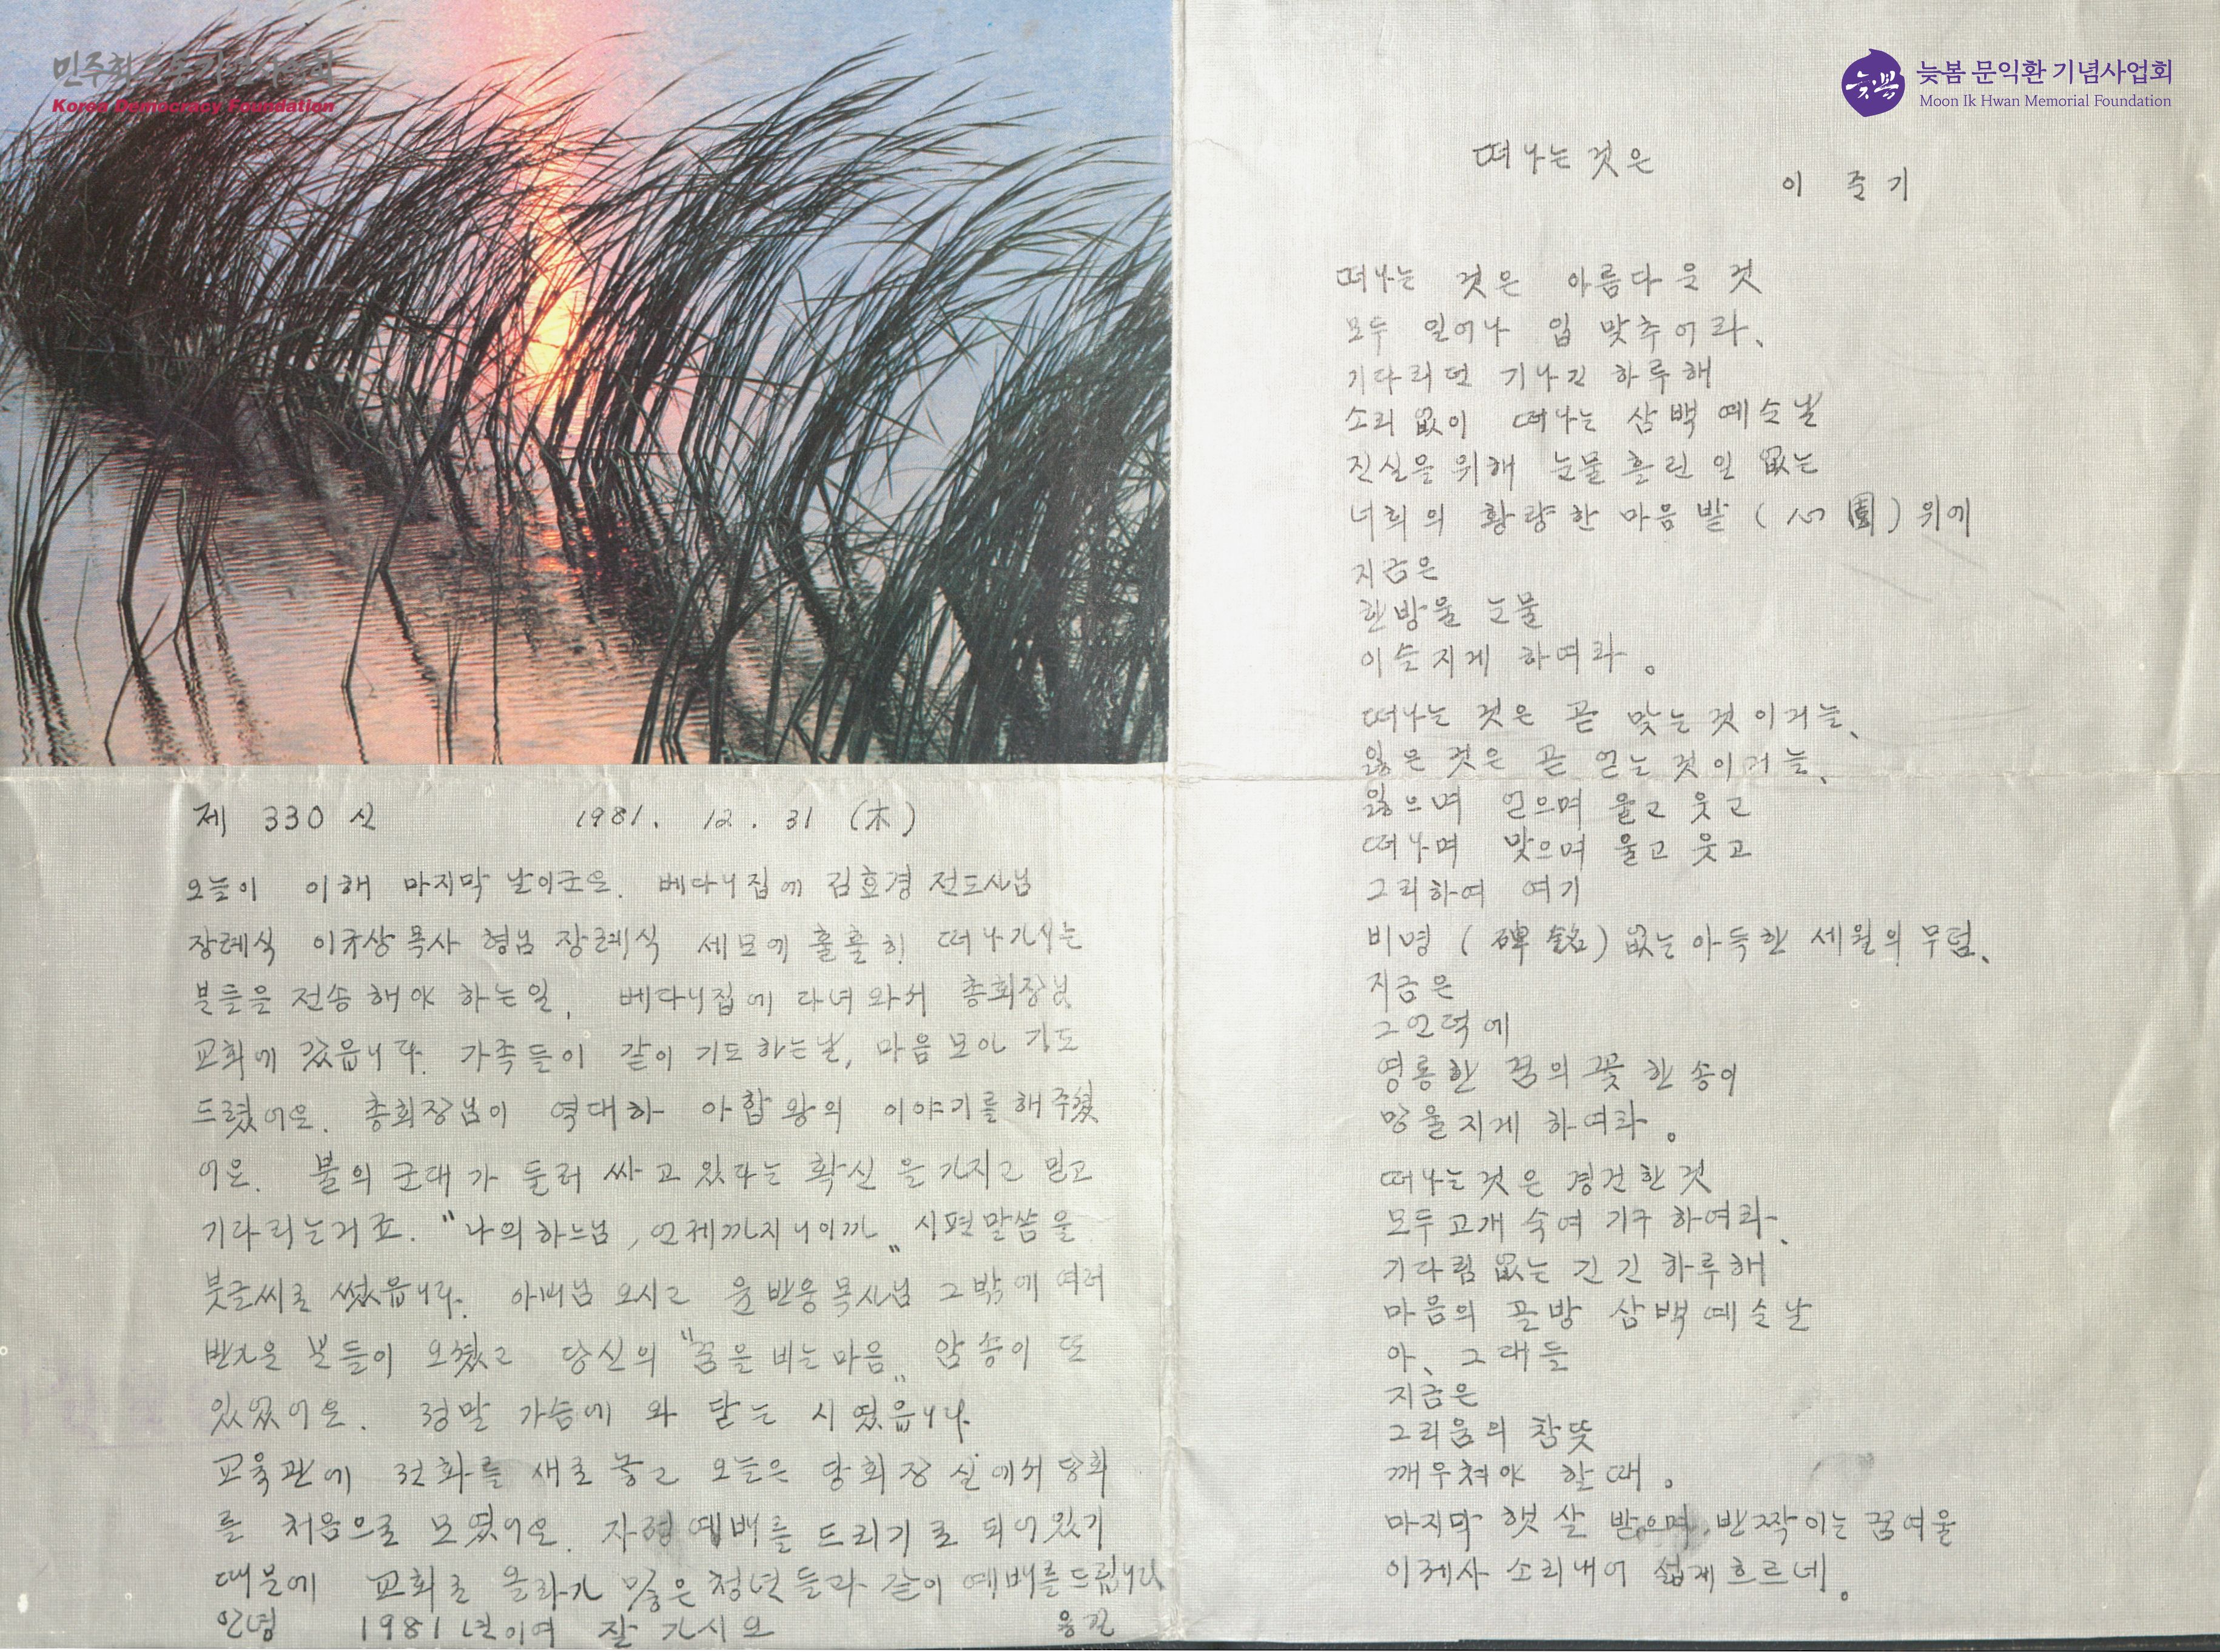 민주화운동기념사업회
Korea Democracy Foundation
늦봄
늦봄 문익환 기념사업회
Moon Ik Hwan Memorial Foundation
제 330 신 1981. 12. 31 (木)
오늘이 이해 마지막 날이군요. 베다니집에 김효경 전도사님
장례식 이규상 목사 형님 장례식 세모에 훌훌히 떠나가시는
분들을 전송해야 하는일, 베다니집에 다녀와서 총회장님
교회에 갔읍니다. 가족들이 같이 기도하는날, 마음모아 기도
드렸어요. 총회장님이 역대하 아합왕의 이야기를 해주셨
어요. 불의 군대가 둘러싸고 있다는 확신을 가지고 믿고
기다리는거죠. "나의 하느님, 언제까지니이까" 시편말씀을
붓글씨로 썼읍니다. 아버님 오시고 윤반웅목사님 그밖에 여러
반가운 분들이 오셨고 당신의 "꿈을 비는 마음" 암송이 또
있었어요. 정말 가슴에 와 닫는 시였읍니다.
교육관에 전화를 새로 놓고 오늘은 당회장실에서 당회
를 처음으로 모였어요. 자정예배를 드리기로 되어있기
때문에 교회로 올라가 많은 청년들과 같이 예배를 드립니다
안녕 1981년이여 잘 가시오 용길
떠나는 것은
이 준 기
떠나는 것은 아름다운 것
모두 일어나 입 맞추어라、
기다리던 기나긴 하루해
소리 없이 떠나는 삼백 예순날
진실을 위해 눈물 흘린 일 없는
너희의 황량한 마음 밭 (心園) 위에
지금은
한방울 눈물
이슬지게 하여라。
떠나는 것은 곧 맞는 것이거늘、
잃은 것은 곧 얻는 것이거늘、
잃으며 얻으며 울고 웃고
떠나며 맞으며 울고 웃고
그리하여 여기
비명 (碑銘) 없는 아득한 세월의 무덤、
지금은
그언덕에
영롱한 꿈의 꽃 한송이
망울지게 하여라。
떠나는것은 경건한 것
모두고개 숙여 기구하여라、
기다림 없는 긴긴 하루해
마음의 골방 삼백예순날
아、그대들
지금은
그리움의 참뜻
깨우쳐야 할때。
마지막 햇살 받으며 반짝이는 꿈여울
이제사 소리내어 섧게흐르네。